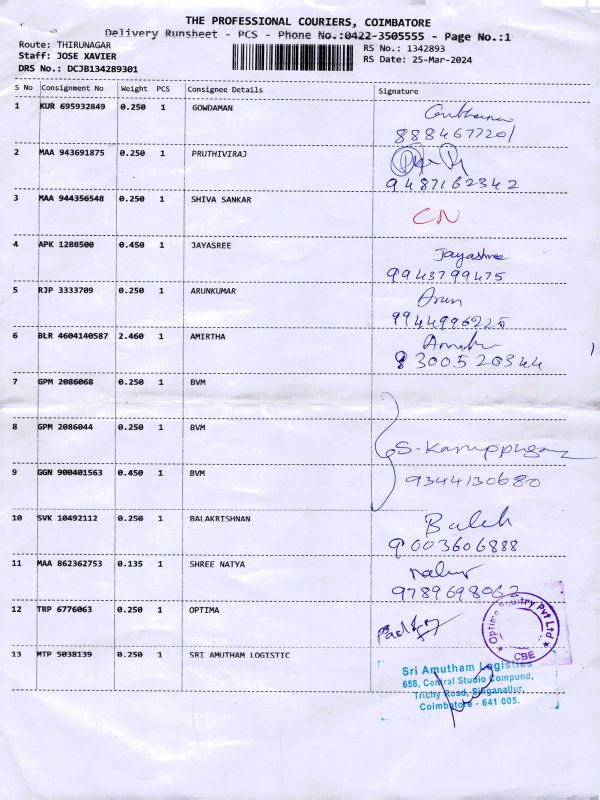 THE PROFESSIONAL COURIERS, COIMBATORE
Delivery Runsheet - PCS - Phone No.:0422-3505555 - Page No.:1
Route: THIRUNAGAR RS No.: 1342893
Staff: JOSE XAVIER RS Date: 25-Mar-2024
DRS No.: DCJB134289301
S No Consignment No Weight PCS Consignee Details Signature
1 KUR 695932849 0.250 1 GOWDAMAN
8884677201
2 MAA 943691875 0.250 1 PRUTHIVIRAJ
9487162342
3 MAA 944356548 0.250 1 SHIVA SANKAR CN
4 APK 1288500 0.450 1 JAYASREE Jayashree
9943799475
5 RJP 3333709 0.250 1 ARUNKUMAR Arun
9944996225
6 BLR 4604140587 2.460 1 AMIRTHA
9300520344
7 GPM 2086068 0.250 1 BVM
8 GPM 2086044 0.250 1 BVM
S-Karuppu
9 GGN 900401563 0.450 1 BVM 9344130680
10 SVK 10492112 0.250 1 BALAKRISHNAN
9003606888
11 MAA 862362753 0.135 1 SHREE NATYA
9789698062
12 TRP 6776063 0.250 1 OPTIMA
Optima Poultry Pvt Ltd
CBE
13 MTP 5038139 0.250 1 SRI AMUTHAM LOGISTIC
Sri Amutham Logistics
658, Central Studio Compund,
Trichy Road, Singanallur,
Coimbatore - 641 005.